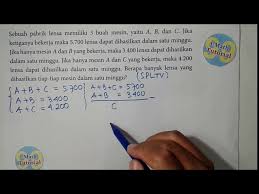 Sebuah pabrik lensa memiliki 3 buah mesin, yaitu A, B, dan C. Jika
ketiganya bekerja, maka 5.700 lensa dapat dihasilkan dalam satu minggu.
Jika hanya mesin A dan B yang bekerja, maka 3.400 lensa dapat dihasilkan
dalam satu minggu. Jika hanya mesin A dan C yang bekerja, 4.200 lensa
dapat dihasilkan dalam satu minggu. Berapa banyak lensa yang
dihasilkan tiap-tiap mesin dalam satu minggu? (SPLTV)
A + B + C = 5700
A + B = 3400
A + C = 4.200
A + B + C = 5700
A + B = 3400
C
Math
Tutorial
Math
Tutorial